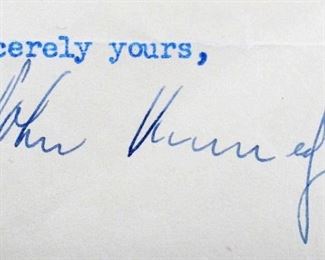 cerely yours,
John Kennedy